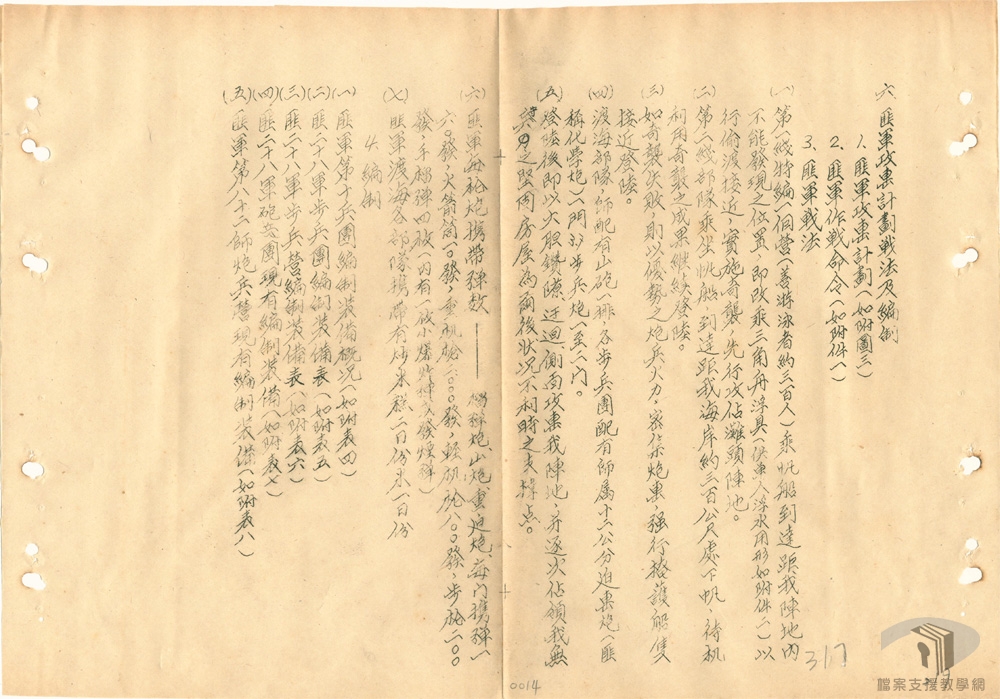 六 匪軍攻擊計劃戰法及編制
1. 匪軍攻擊計劃(如附圖三)
2. 匪軍作戰命令(如附件一)
3. 匪軍戰法
(一) 第一綫特編一個營(善游泳者約三百人)乘帆船到達距我陣地內
不能發現之位置,即改乘三角舟浮具(供單人浮水用形如附件二)以
行偷渡接近,實施奇襲,先行攻佔灘頭陣地。
(二) 第二綫部隊乘坐帆船到達距我海岸約三百公尺處下帆,待机
利用奇襲之成果繼續登陸。
(三) 如奇襲失敗,則以優勢之炮兵火力,密集炮擊,强行掩護船隻
接近登陸。
(四) 渡海部隊一師配有山砲一排,各步兵團配有師属十二公分迫擊炮(匪
稱化學炮)一門,及步兵炮一至二門。
(五) 登陸後即以大胆鑽隙迂迴側面攻擊我陣地,并逐次佔領我無
之堅固房屋為爾後狀况不利時之支撑点。
(六) 匪軍每枪炮携帶弹数—— 山炮、重迫炮、每門携弹一
六〇發,火箭筒一〇發,重机枪二〇〇〇發,輕机枪八〇〇發,步枪二〇〇
發,手榴弹四枚(內有一枚小
(七) 匪軍渡海各部隊携帶有炒米糕二日份水一日份
4. 編制
(一) 匪軍第十兵團編制裝備概况(如附表四)
(二) 匪二十八軍步兵團編制裝備表(如附表五)
(三) 匪二十八軍步兵營編制裝備表(如附表六)
(四) 匪二十八軍砲兵團現有編制裝備(如附表七)
(五) 匪軍第八十二師炮兵營現有編制裝備(如附表八)
317
0014
檔案支援教學網